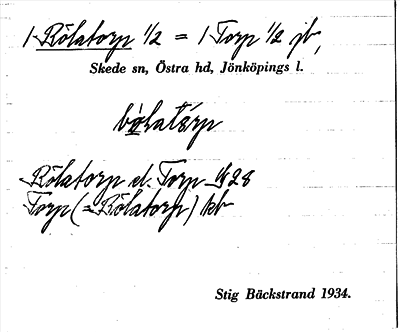 1 Rölatorp 1/2 = 1 Torp 1/2 jb,
Skede sn, Östra hd, Jönköpings l.
Rölatorp el. Torp
Torp (= Rölatorp) kb
Stig Bäckstrand 1934.